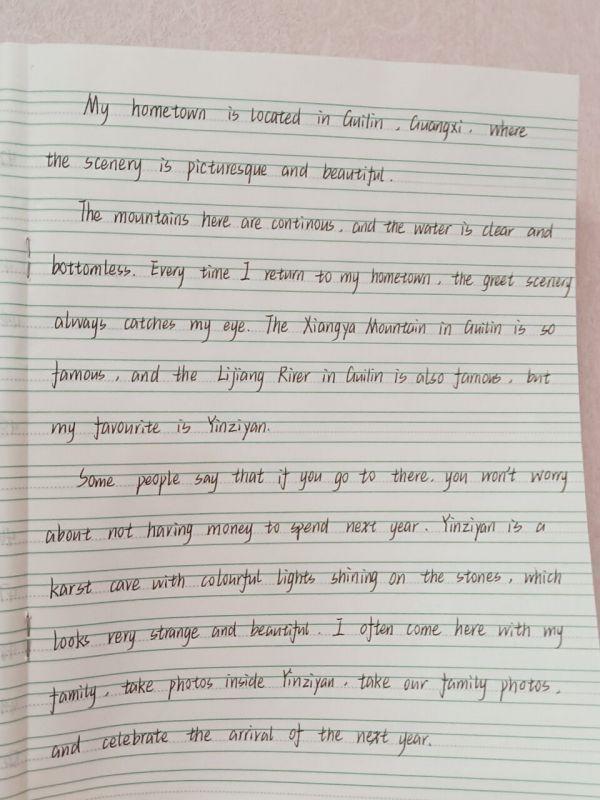 My hometown is located in Guilin, Guangxi, where
the scenery is picturesque and beautiful.
The mountains here are continous, and the water is clear and
bottomless. Every time I return to my hometown, the greet scenery
always catches my eye. The Xiangya Mountain in Guilin is so
famous, and the Lijiang River in Guilin is also famous, but
my favourite is Yinziyan.
Some people say that if you go to there, you won't worry
about not having money to spend next year. Yinziyan is a
karst cave with colourful lights shining on the stones, which
looks very strange and beautiful. I often come here with my
family, take photos inside Yinziyan, take our family photos,
and celebrate the arrival of the next year.